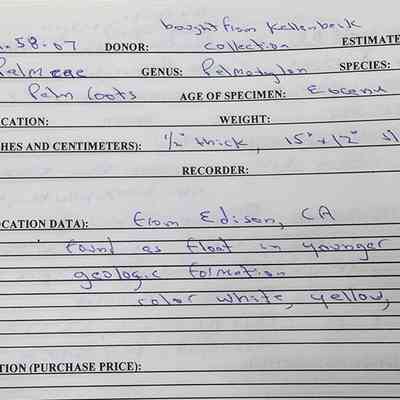 bought from Kallenbeck
.58.07 DONOR: collection ESTIMATE
Palmeae GENUS: Palmoxylon SPECIES:
Palm roots AGE OF SPECIMEN: Eocene
CATION: WEIGHT:
HES AND CENTIMETERS): 1/2" thick, 15" x 12" sl
RECORDER:
OCATION DATA): From Edison, CA
found as float in younger
geologic formation
color white, yellow,
TION (PURCHASE PRICE):